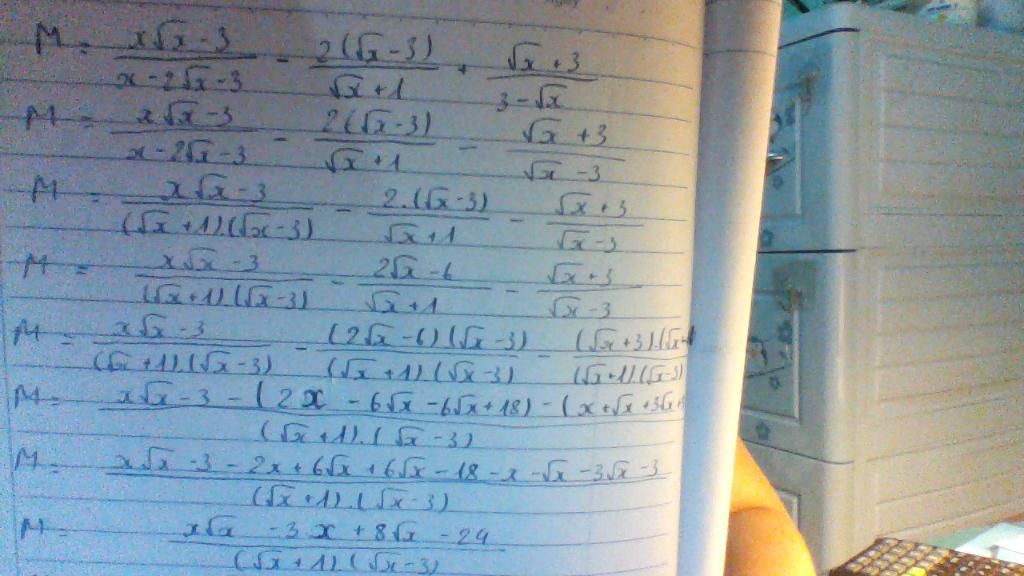 M = (x√x - 3)/(x - 2√x - 3) - 2(√x - 3)/(√x + 1) + (√x + 3)/(3 - √x)
M = (x√x - 3)/(x - 2√x - 3) - 2(√x - 3)/(√x + 1) - (√x + 3)/(√x - 3)
M = (x√x - 3)/((√x + 1).(√x - 3)) - 2.(√x - 3)/(√x + 1) - (√x + 3)/(√x - 3)
M = (x√x - 3)/((√x + 1).(√x - 3)) - (2√x - 6)/(√x + 1) - (√x + 3)/(√x - 3)
M = (x√x - 3)/((√x + 1).(√x - 3)) - (2√x - 6)(√x - 3)/((√x + 1).(√x - 3)) - (√x + 3).(√x/((√x + 1)(√x - 3)
M = (x√x - 3 - (2x - 6√x - 6√x + 18) - (x + √x + 3√x +)/((√x + 1).(√x - 3))
M = (x√x - 3 - 2x + 6√x + 6√x - 18 - x - √x - 3√x - 3)/((√x + 1).(√x - 3))
M = (x√x - 3x + 8√x - 24)/((√x + 1).(√x - 3))